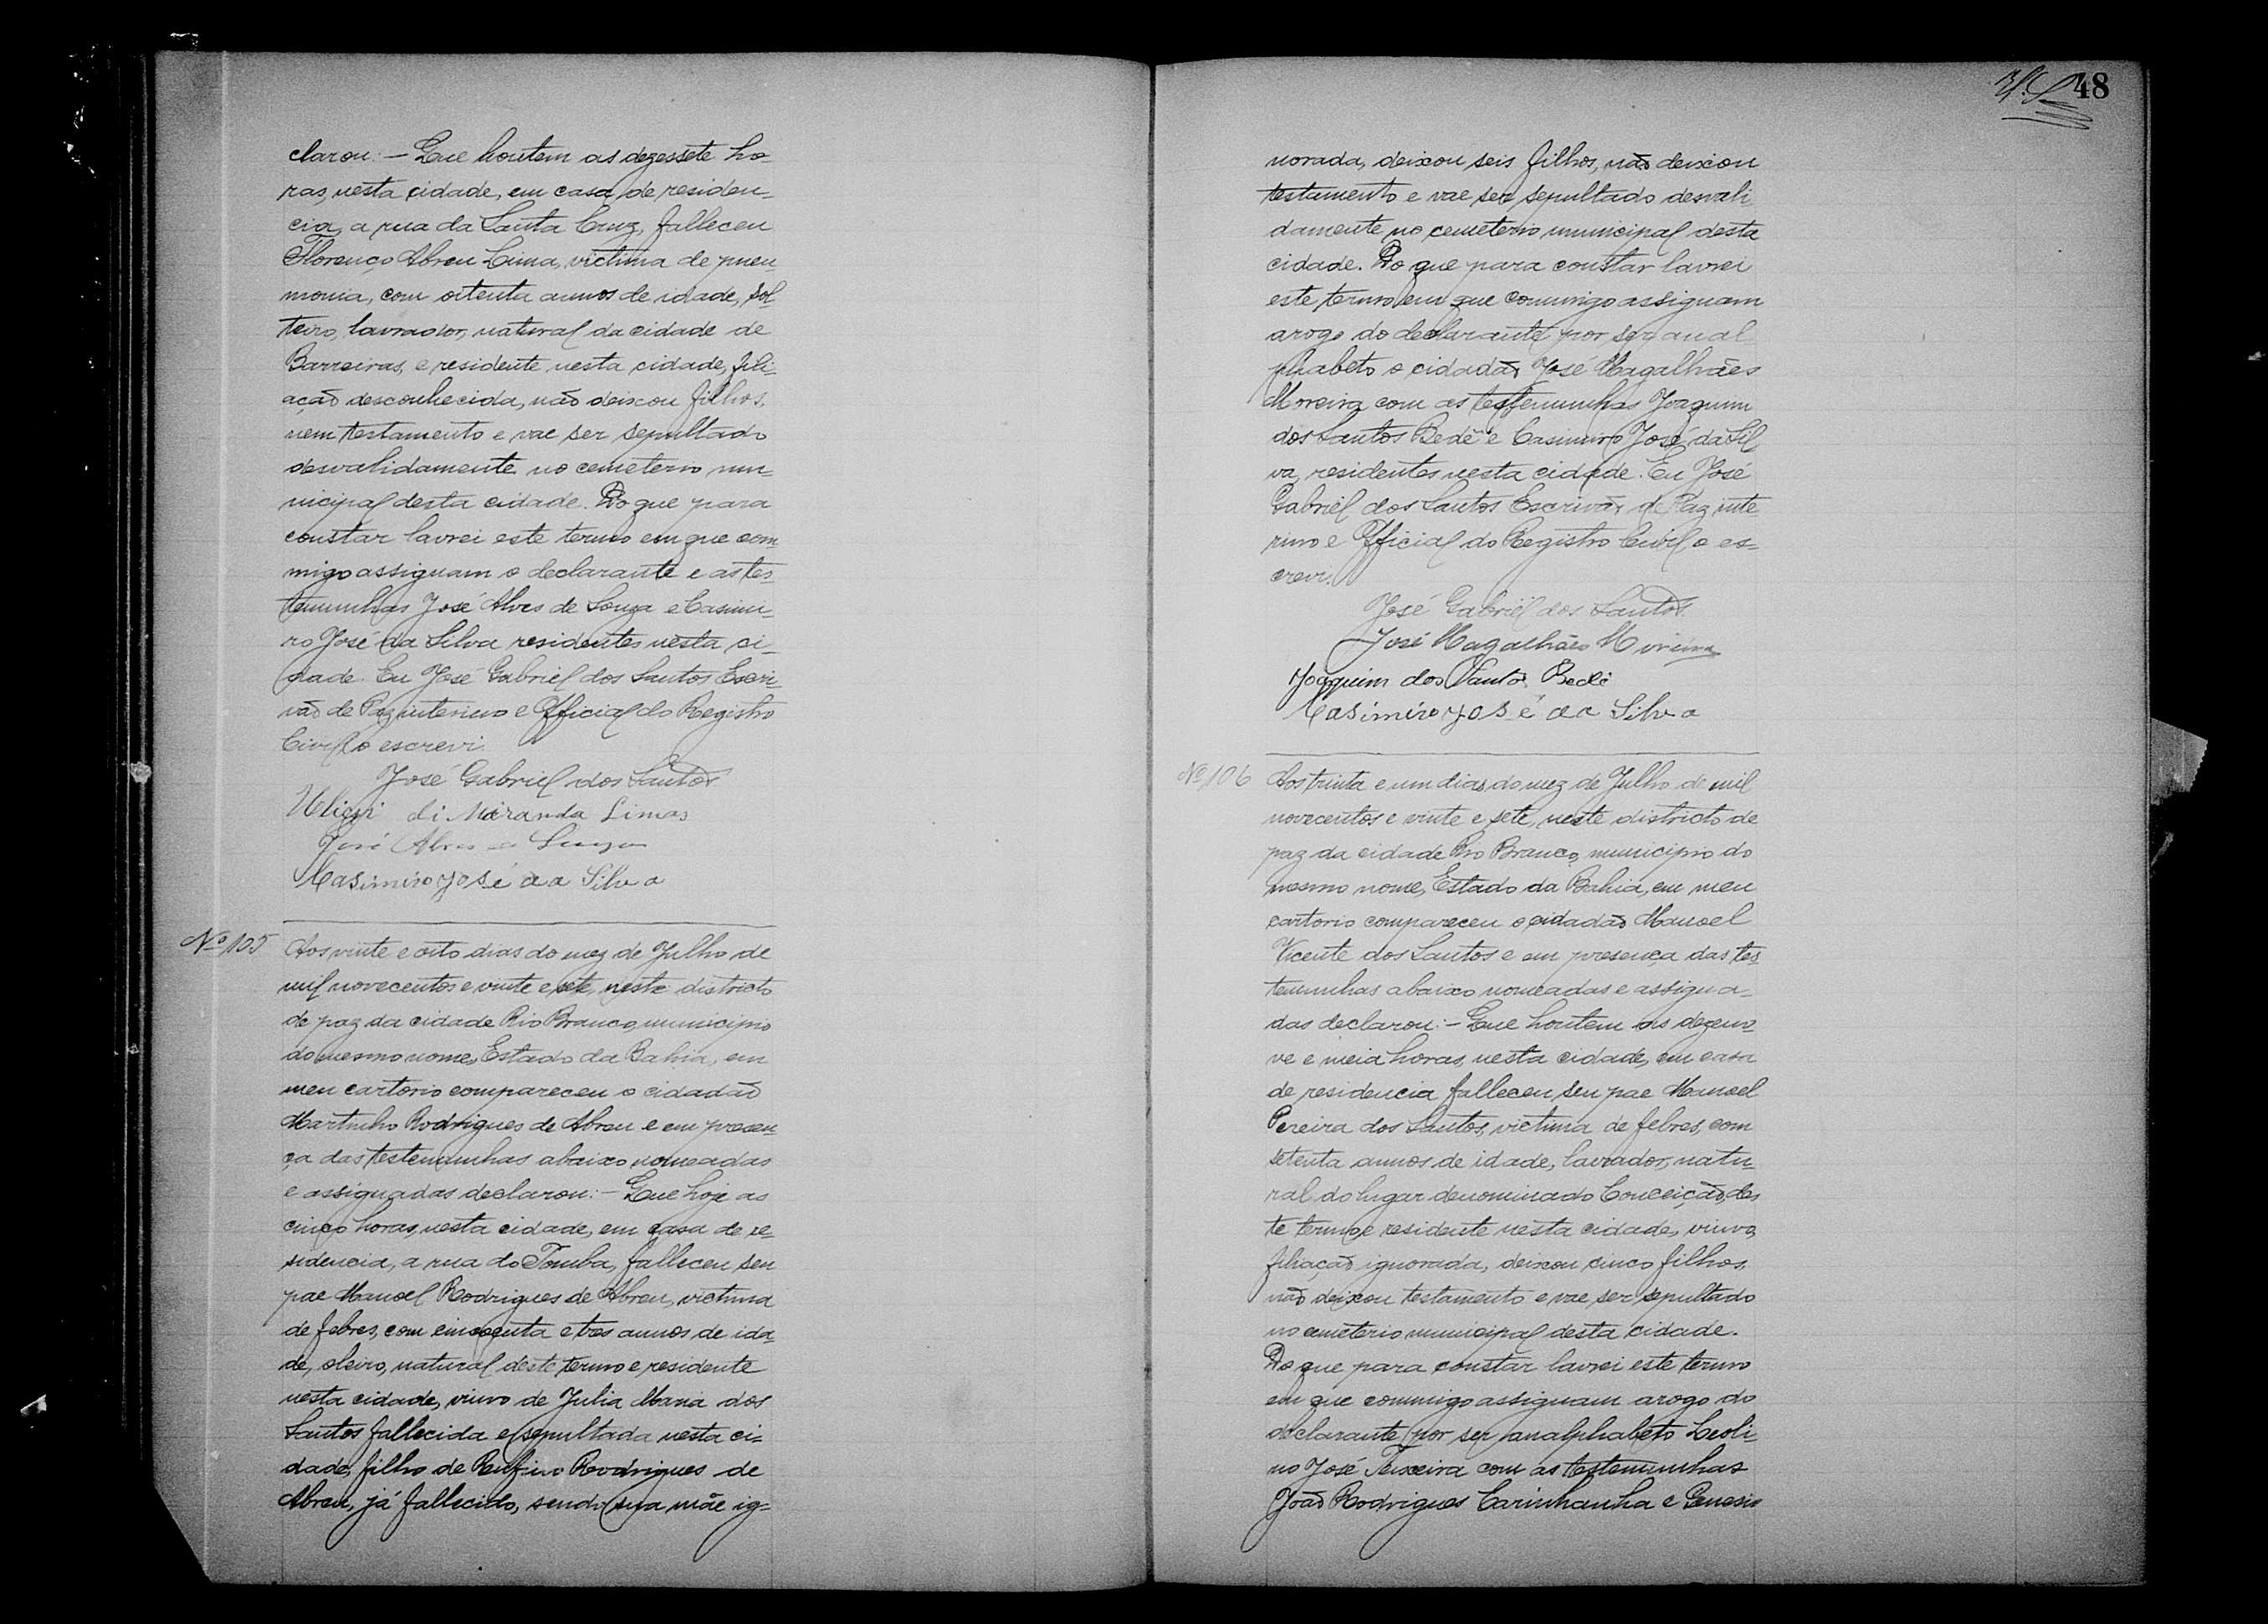 clarou: — Que hontem as dezessete ho-
ras, nesta cidade, em casa de residen-
cia, a rua da Santa Cruz, falleceu
Florenço Abreu Lima, victima de pneu-
monia, com oitenta annos de idade, sol-
teiro, lavrador, natural da cidade de
Barreiras, e residente nesta cidade, fili-
ação desconhecida, não deixou filhos,
nem testamento e vae ser sepultado
desvalidamente no cemeterio mu-
nicipal desta cidade. Do que para
constar lavrei este termo em que com-
migo assignam o declarante e as tes-
temunhas José Alves de Souza e Casimi-
ro José da Silva residentes nesta ci-
dade. Eu José Gabriel dos Santos Escri-
vão de Paz interino e Official do Registro
Civil o escrevi.
José Gabriel dos Santos
di Miranda Limas
José Alves de Souza
Casimiro José da Silva
Nº 105
Aos vinte e oito dias do mez de Julho de
mil novecentos e vinte e sete, neste districto
de paz da cidade Rio Branco, municipio
do mesmo nome, Estado da Bahia, em
meu cartorio compareceu o cidadão
Martinho Rodrigues de Abreu e em presen-
ça das testemunhas abaixo nomeadas
e assignadas declarou: — Que hoje as
cinco horas, nesta cidade, em casa de re-
sidencia, a rua do Tomba, falleceu seu
pae Manoel Rodrigues de Abreu, victima
de febres, com cincoenta e tres annos de ida-
de, oleiro, natural deste termo e residente
nesta cidade, viuvo de Julia Maria dos
Santos fallecida e sepultada nesta ci-
dade, filho de Rufino Rodrigues de
Abreu, já fallecido, sendo sua mãe ig-
48
norada, deixou seis filhos, não deixou
testamento e vae ser sepultado desvali
damente no cemeterio municipal desta
cidade. Do que para constar lavrei
este termo em que commigo assignam
arogo do declarante por ser anal
phabeto o cidadão José Magalhães
Moreira com as testemunhas Joaquim
dos Santos Bedê e Casimiro José da Sil-
va, residentes nesta cidade. Eu José
Gabriel dos Santos Escrivão de Paz inte-
rino e Official do Registro Civil o es-
crevi.
José Gabriel dos Santos
José Magalhães Moreira
Joaquim dos Santos Bedê
Casimiro José da Silva
Nº 106
Aos trinta e um dias do mez de Julho de mil
novecentos e vinte e sete, neste districto de
paz da cidade Rio Branco, municipio do
mesmo nome, Estado da Bahia, em meu
cartorio compareceu o cidadão Manoel
Vicente dos Santos e em presença das tes-
temunhas abaixo nomeadas e assigna-
das declarou: — Que hontem as dezeno-
ve e meia horas, nesta cidade, em casa
de residencia falleceu seu pae Manoel
Pereira dos Santos, victima de febres, com
setenta annos de idade, lavrador, natu-
ral do lugar denominado Conceição, des-
te termo e residente nesta cidade, viuvo,
filiação ignorada, deixou cinco filhos,
não deixou testamento e vae ser sepultado
no cemeterio municipal desta cidade.
Do que para constar lavrei este termo
em que commigo assignam arogo do
declarante por ser analphabeto Leoli-
no José Teixeira com as testemunhas
João Rodrigues Carinhanha e Genesio